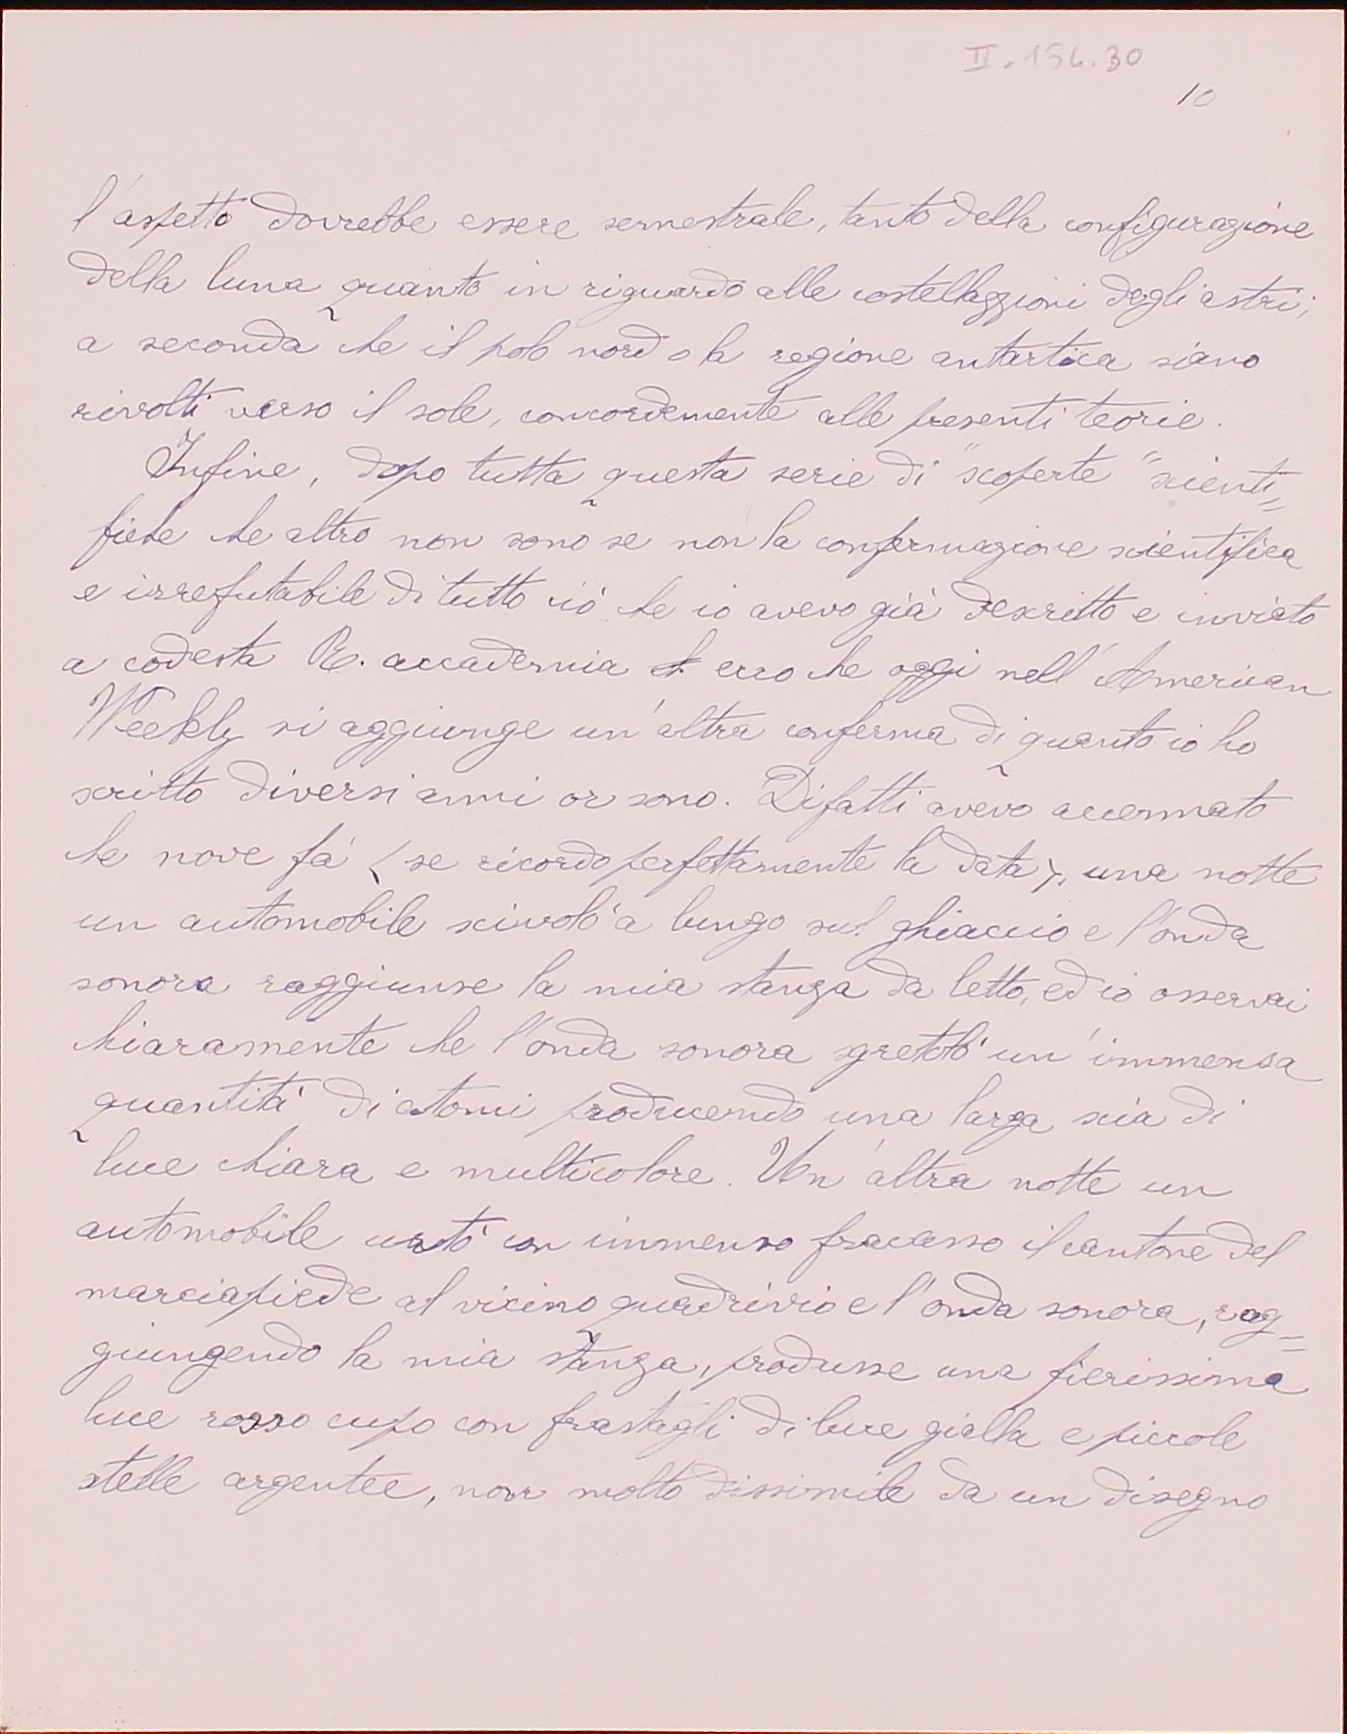 II.154.30
10
l'aspetto dovrebbe essere semestrale, tanto della configurazione
della luna quanto in riguardo alle costellazzioni degli astri;
a seconda che il polo nord o la regione antartica siano
rivolti verso il sole, concordemente alle presenti teorie.
Infine, dopo tutta questa serie di "scoperte" scienti=
fiche che altro non sono se non la confermazione scientifica
e irrefutabile di tutto ció che io avevo giá descritto e inviato
a codesta R. accademia ecco che oggi nell'American
Weekly si aggiunge un'altra conferma di quanto io ho
scritto diversi anni or sono. Difatti avevo accennato
che nove fá (se ricordo perfettamente la data), una notte
un automobile scivoló a lungo sul ghiaccio e l'onda
sonora raggiunse la mia stanza da letto, ed io osservai
chiaramente che l'onda sonora sgretoló un'immensa
quantitá di atomi producendo una larga scia di
luce chiara e multicolore. Un'altra notte un
automobile urtó con immenso fracasso il cantone del
marciapiede al vicino quadrivio e l'onda sonora, rag=
giungendo la mia stanza, produsse una fierissima
luce rosso cupo con frastagli di luce gialla e piccole
stelle argentee, non molto dissimile da un disegno